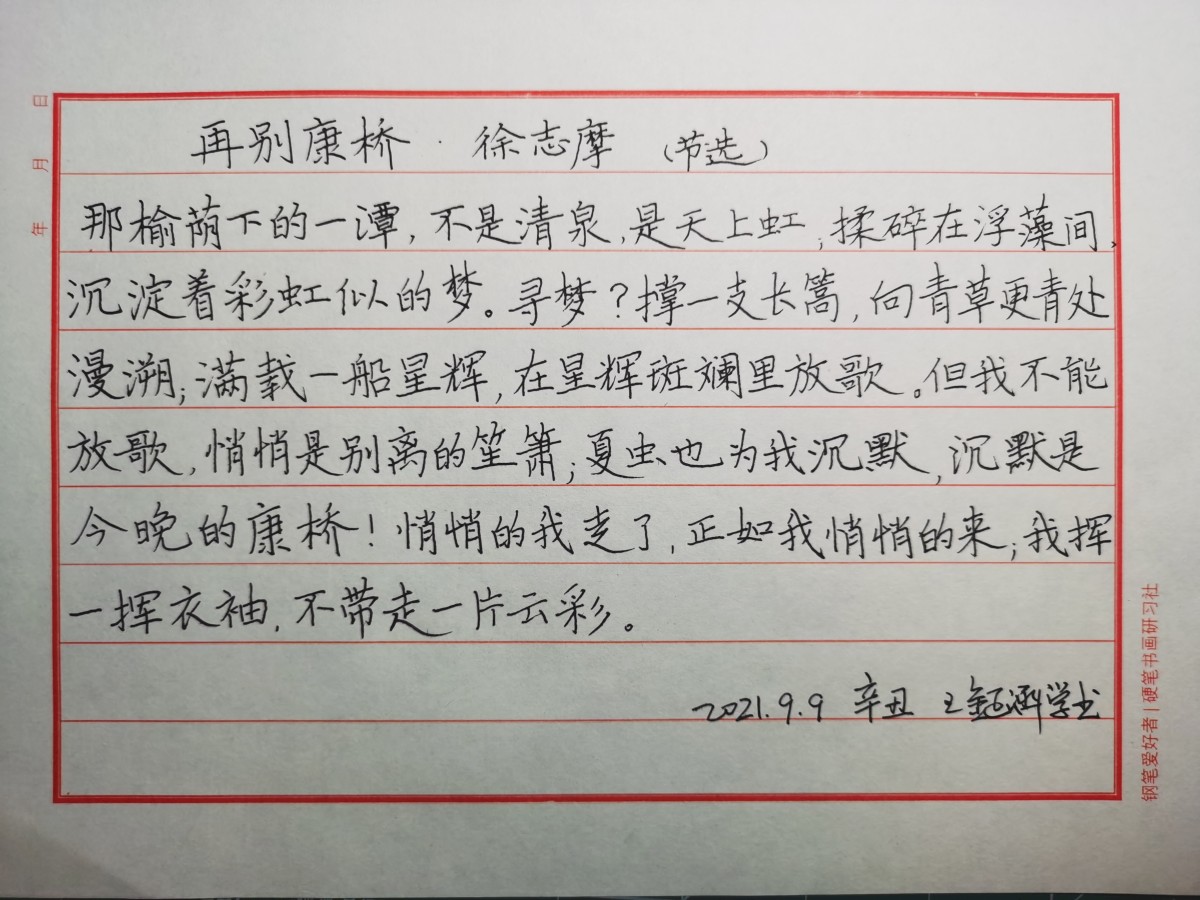 再别康桥 · 徐志摩 （节选）
那榆荫下的一潭，不是清泉，是天上虹；揉碎在浮藻间，
沉淀着彩虹似的梦。寻梦？撑一支长篙，向青草更青处
漫溯；满载一船星辉，在星辉斑斓里放歌。但我不能
放歌，悄悄是别离的笙箫；夏虫也为我沉默，沉默是
今晚的康桥！悄悄的我走了，正如我悄悄的来；我挥
一挥衣袖，不带走一片云彩。
2021.9.9 辛丑 王钰涵学书
年 月 日
钢笔爱好者|硬笔书画研习社